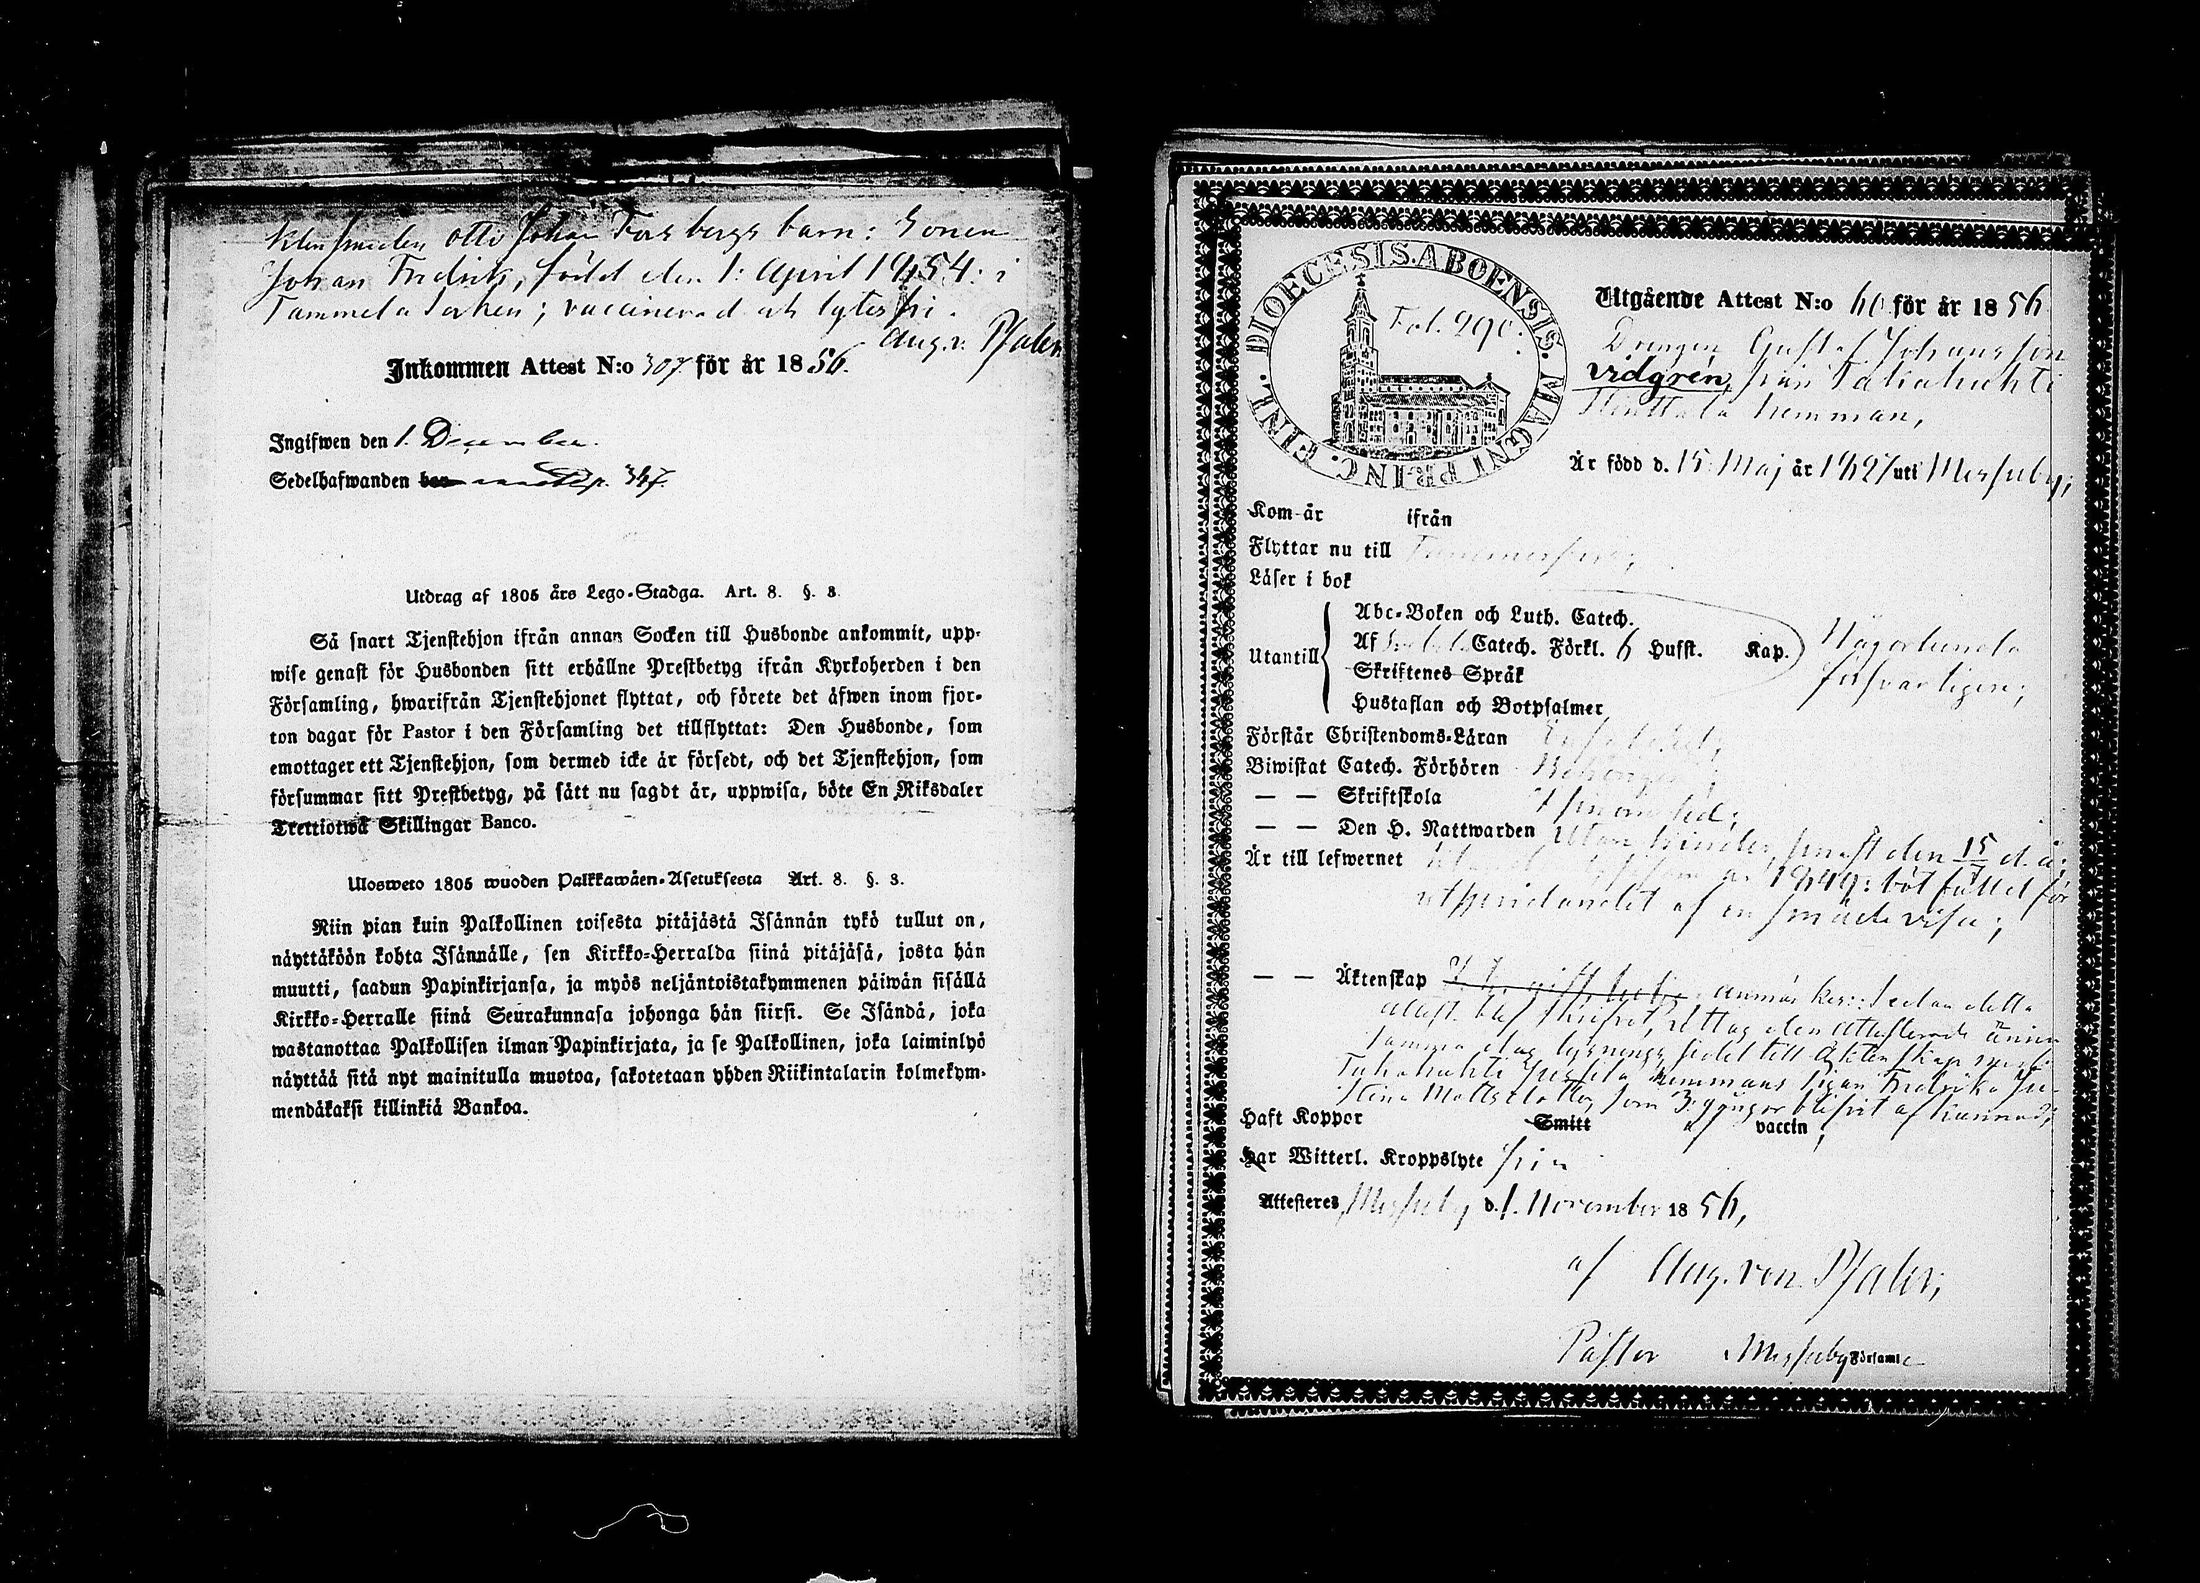 Klensmeden Otto Johan Forsbergs barn: Sonen
Johan Fredrik, född den 1: April 1854: i
Tammela Socken; vaccinerad och lytesfri.
Aug. v. Pfaler
Inkommen Attest N:o 307. för år 1856.
Ingifwen den 1. December.
Sedelhafwanden
Utdrag af 1805 års Lego-Stadga. Art. 8. §. 3.
Så snart Tjenstehjon ifrån annan Socken till Husbonde ankommit, upp-
wise genast för Husbonden sitt erhållne Prestbetyg ifrån Kyrkoherden i den
Församling, hwarifrån Tjenstehjonet flyttat, och förete det äfwen inom fjor-
ton dagar för Pastor i den Församling det tillflyttat: Den Husbonde, som
emottager ett Tjenstehjon, som dermed icke är försedt, och det Tjenstehjon, som
försummar sitt Prestbetyg, på sätt nu sagdt är, uppwisa, böte En Riksdaler
Trettiotwå Skillingar Banco.
Ulosweto 1805 wuoden Palkkawäen-Asetuksesta Art. 8. §. 3.
Niin pian kuin Palkollinen toisesta pitäjästä Isännän tykö tullut on,
näyttäköön kohta Isännälle, sen Kirkko-Herralda siinä pitäjäsä, josta hän
muutti, saadun Papinkirjansa, ja myös neljäntoistakymmenen päiwän sisällä
Kirkko-Herralle siinä Seurakunnasa johonga hän siirsi. Se Isändä, joka
wastanottaa Palkollisen ilman Papinkirjata, ja se Palkollinen, joka laiminlyö
näyttää sitä nyt mainitulla muotoa, sakotetaan yhden Riikintalarin kolmekym-
mendäkaksi killinkiä Bankoa.
DIOECESIS. ABOENSIS. MAGNI PRINC. FINL.
Fol. 290.
Utgående Attest N:o 60 för år 1856
Drengen Gustaf Johansson
Vidgrén, från Takahuhti
Hinttala hemman,
Är född d. 15 Maj år 1827 uti Messuby;
Kom år ifrån
Flyttar nu till Tammerfors;
Läser i bok
Abc-Boken och Luth. Catech.
Utantill Af Catech. Förkl. 6 Hufst. Kap.
Skriftenes Språk
Någorlunda
försvarligen;
Hustaflan och Botpsalmer
Förstår Christendoms-Läran
Biwistat Catech. Förhören
— — Skriftskola
— — Den H. Nattwarden utan hinder, senast den 15 d. å:
Är till lefwernet 1849: böt fälld för
utspridandet af en smäde visa;
— — Äktenskap anmärkes: Sedan detta
attest blef skrifvet, uttog den attesterade ännu
samma dag lysningssedel till Äktenskap med
Takahuhti hemmans pigan Fredrika
Stina Mattsdotter, som 3 gånger blifvit af kunnad;
Haft Koppor Smitt af vaccin;
Har Witterl. Kroppslyte fri
Attesteras Messuby d. 1. November 1856,
af Aug. von Pfaler;
Pastor i Messuby Församl